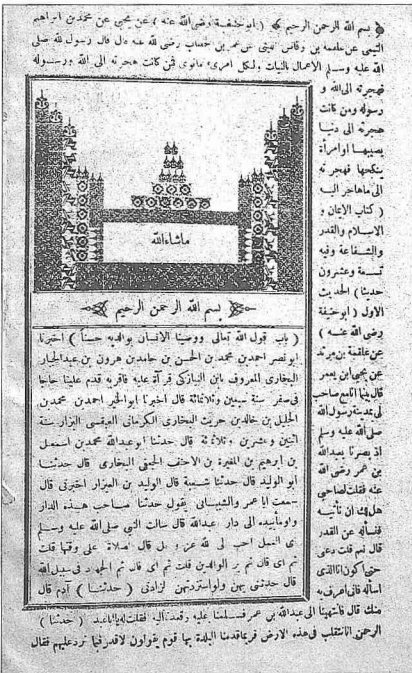 ﴿ بسم الله الرحمن الرحيم ﴾ ( ابو حنيفة رضى الله عنه ) عن يحيى عن محمد بن ابراهيم
التيمى عن علقمة بن وقاص الليثى عن عمر بن خطاب رضى الله عنه قال قال رسول الله صلى
الله عليه وسلم الاعمال بالنيات ولكل امرىء مانوى فمن كانت هجرته الى الله ورسوله
فهجرته الى الله و
رسوله ومن كانت
هجرته الى دنيا
يصيبها او امرأة
ينكحها فهجرته
الى ماهاجر اليه
( كتاب الايمان و
الاسلام والقدر
والشفاعة وفيه
تسعة وعشرون
حديثا ) الحديث
الاول ( ابو حنيفة
رضى الله عنه )
عن علقمة بن مرثد
عن يحيى ابن يعمر
قال بينما انا مع صاحب
لى بمدينة رسول الله
صلى الله عليه وسلم
اذ بصرنا بعبد الله
بن عمر رضى الله
عنه فقلت لصاحبى
هل لك ان نأتيه
فنسأله عن القدر
قال نعم قلت دعنى
حتى اكون انا الذى
اسأله فانى اعرف به
منك قال فانتهينا الى عبد الله بن عمر فسلمنا عليه وقعدنا اليه فقلت له يا ابا عبد
الرحمن انا نتقلب فى هذه الارض فربما قدمنا البلدة بها قوم يقولون لا قدر فبما نرد عليهم فقال
ماشاء الله
بسم الله الرحمن الرحيم
( باب قول الله تعالى ووصينا الانسان بوالديه حسنا ) اخبرنا
ابو نصر احمد بن محمد بن الحسن بن حامد بن هرون بن عبد الجبار
البخارى المعروف بابن النيازكى قرأة عليه فاقربه قدم علينا حاجا
فى صفر سنة سبعين وثلاثمائة قال اخبرنا ابو الخير احمد بن محمد بن
الجليل بن خالد بن حريث البخارى الكرمانى العبقسى البزار سنة
اثنين وعشرين وثلاثمائة قال حدثنا ابو عبد الله محمد بن اسمعيل
بن ابرهيم بن المغيرة بن الاحنف الجعفى البخارى قال حدثنا
ابو الوليد قال حدثنا شعبة قال الوليد بن العيزار اخبرنى قال
سمعت ابا عمر والشيبانى يقول حدثنا صاحب هذه الدار
واومأ بيده الى دار عبد الله قال سألت النبى صلى الله عليه وسلم
اى العمل احب الى الله عز وجل قال الصلاة على وقتها قلت
ثم اى قال ثم بر الوالدين قلت ثم اى قال ثم الجهاد فى سبيل الله
قال حدثنى بهن ولو استزدتهن لزادنى ( حدثنا ) آدم قال
( حدثنا )